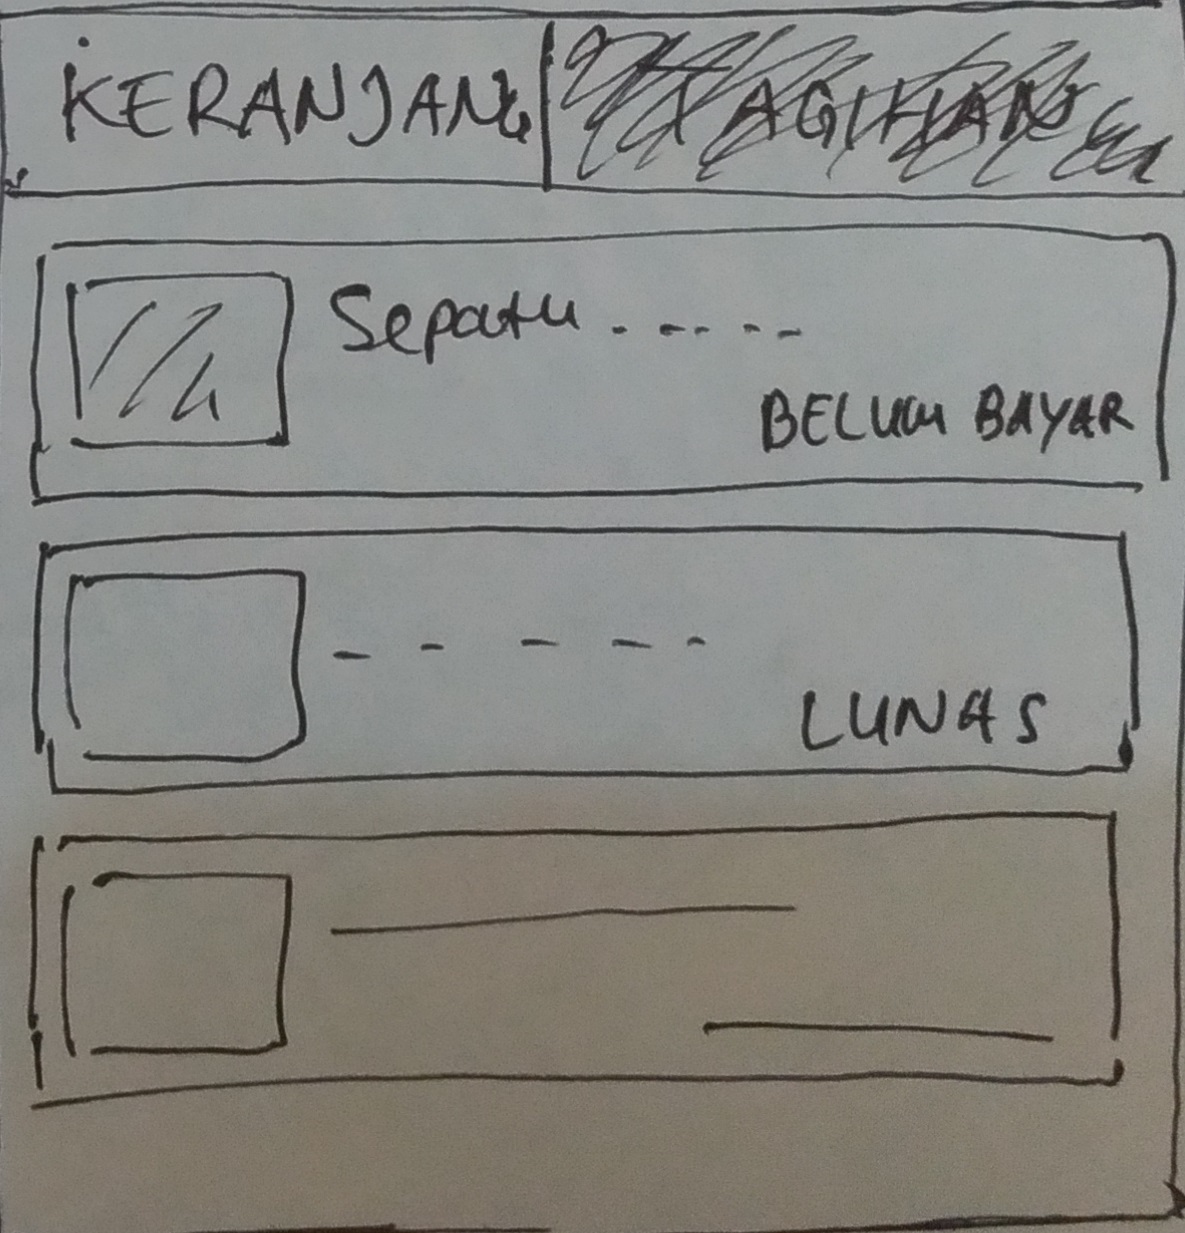 KERANJANG
TAGIHAN
Sepatu . - -- - --
BELUM BAYAR
- - - - -
LUNAS